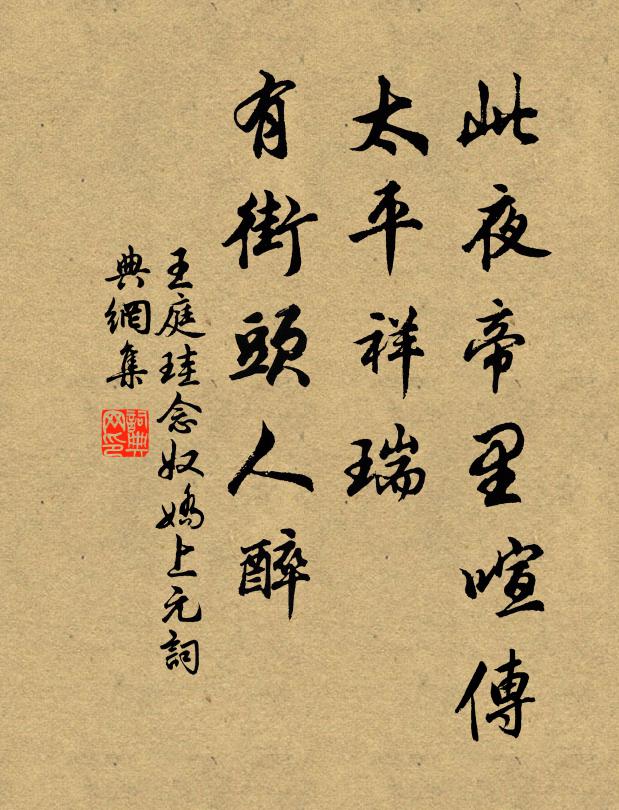 此夜帝里喧傳
太平祥瑞
有街頭人醉
王庭珪念奴嬌上元詞
典網集
詞典网印